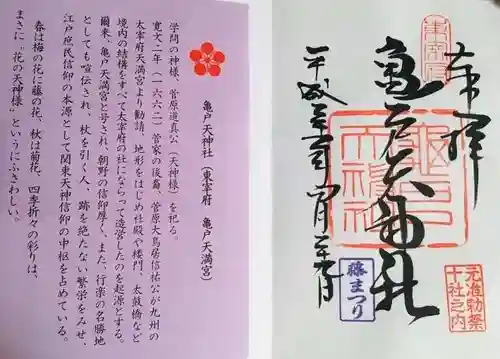 亀戸天神社（東宰府　亀戸天満宮）
学問の神様、菅原道真公（天神様）を祀る。
寛文二年（一六六二）菅家の後裔、菅原大鳥居信祐公が九州の
太宰府天満宮より勧請、地形をはじめ社殿や楼門、太鼓橋など
境内の結構をすべて太宰府の社にならって造営したのを起源とする。
爾来、亀戸天満宮と号され、朝野の信仰厚く、また、行楽の名勝地
としても喧伝され、杖を引く人、跡を絶たない繁栄をみせ、
江戸庶民信仰の本源として関東天神信仰の中枢を占めている。
春は梅の花に藤の花、秋は菊花、四季折々の彩りは、
まさに"花の天神様"というにふさわしい。
東宰府
奉拝
亀戸天神社
亀戸天神社
元准勅祭
十社之内
藤まつり